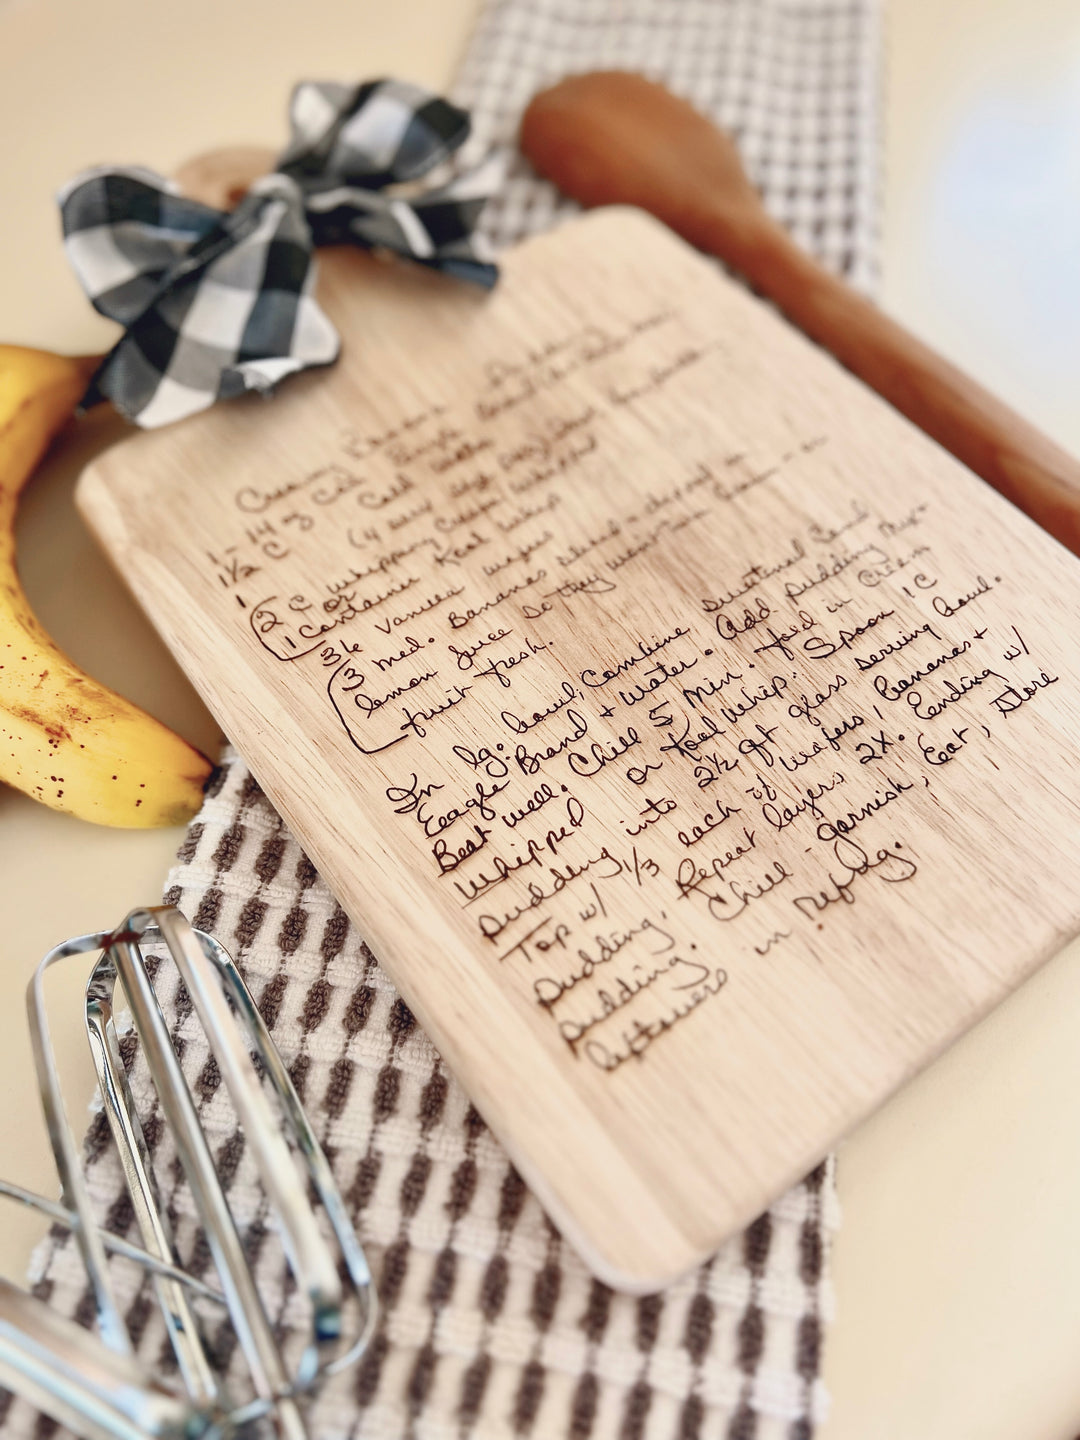 Creamy Banana Pudding
1 - 14 oz Can Eagle Brand
1½ C Cold Water
1 (4 serv size pkg)
2 C Whipping Cream Whipped
or
1 Container Kool Whip
36 Vanilla wafers
3 med. Bananas sliced + dipped in
lemon juice so they
fruit fresh.
In lg. bowl, Combine Sweetened Cond
Eeagle Brand + Water. Add pudding mix
Beat well. Chill 5 min. Fold in Cream
Whipped or Kool Whip. Spoon 1 C
pudding into 2½ qt glass serving bowl.
Top w/ 1/3 each of wafers, Bananas +
pudding. Repeat layers 2X. Ending w/
pudding. Chill - garnish, Eat, store
leftovers in refrig.